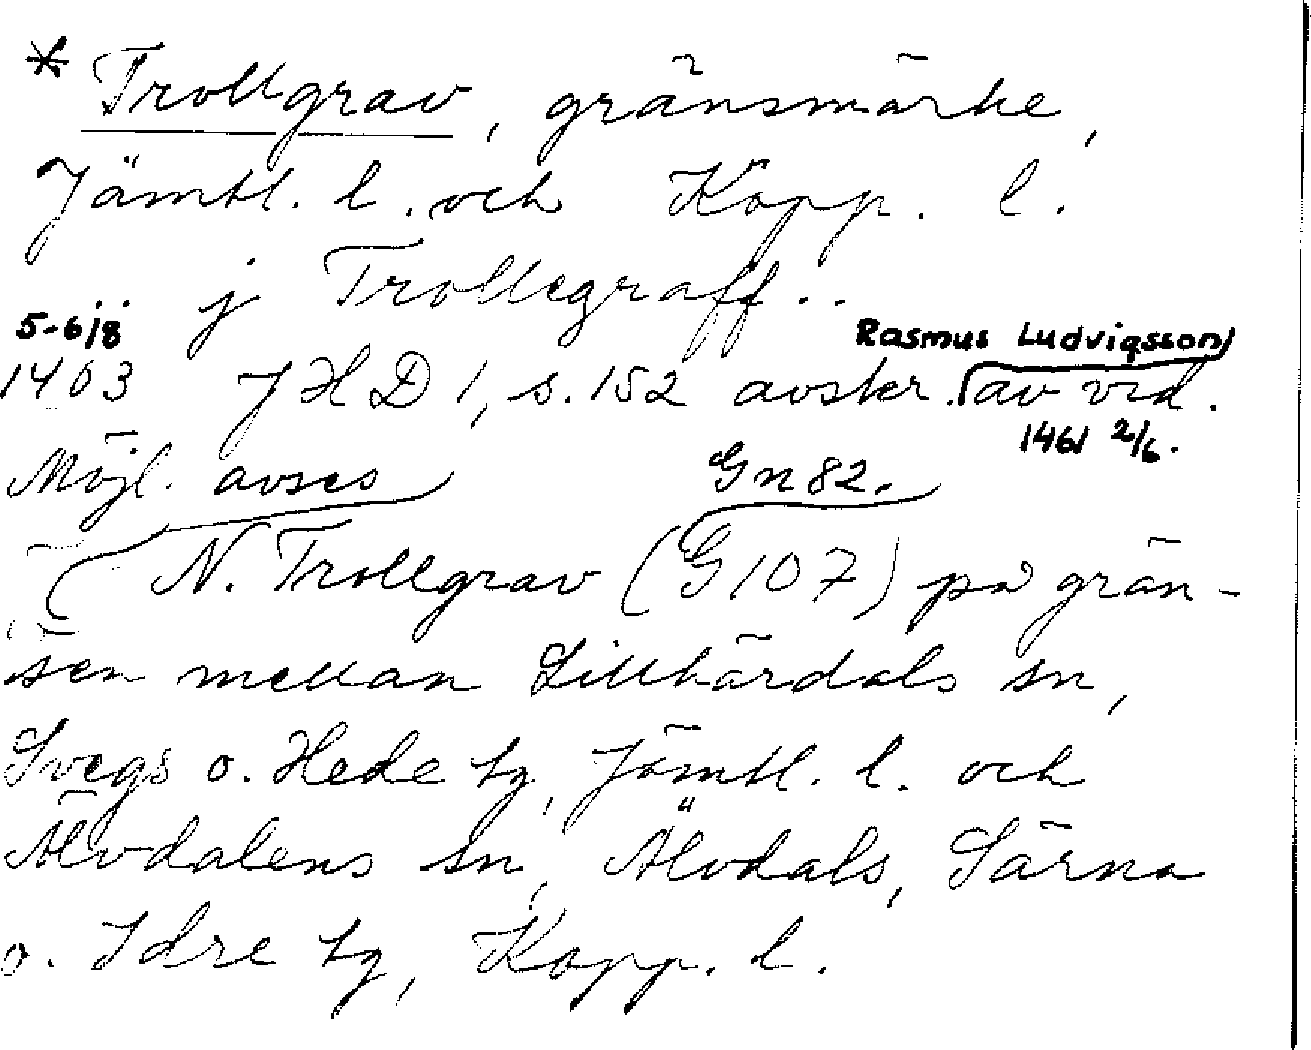 * Trollgrav, gränsmärke,
Jämtl. l. och Kopp. l.
j Trollegraff..
5-6/8 Rasmus Ludvigsson
1403 JHD 1, s. 152 avskr. av vid.
1461 2/6.
Möjl. avses Gn 82.
N. Trollgrav (G 107) på grän-
sen mellan Lillhärdals sn,
Svegs o. Hede tg, Jämtl. l. och
Älvdalens sn, Älvdals, Särna
o. Idre tg, Kopp. l.